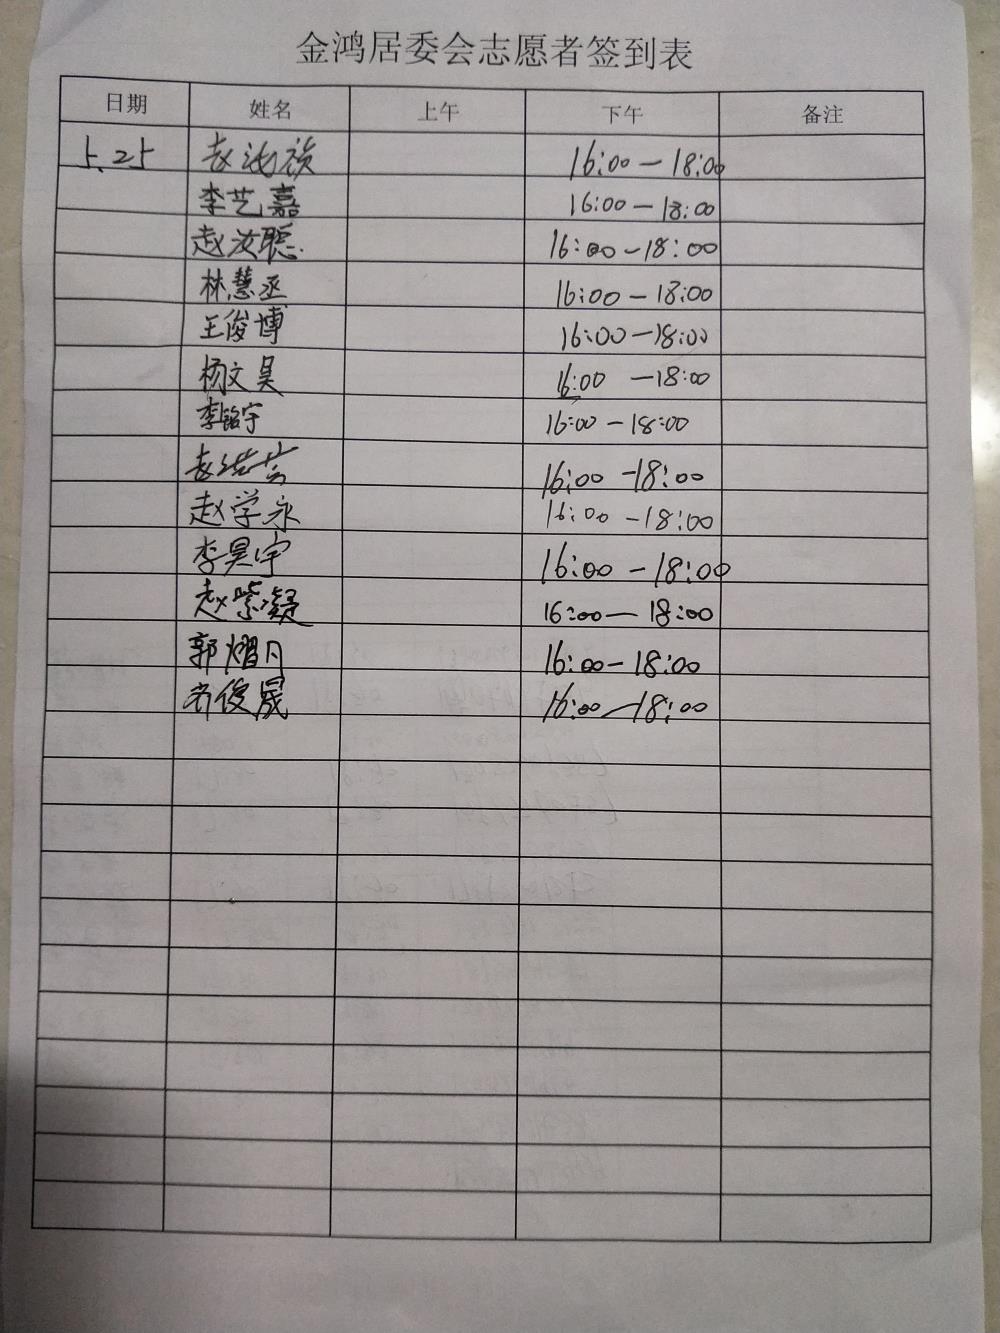 金鸿居委会志愿者签到表
日期 姓名 上午 下午 备注
5.25 赵 16:00-18:00
李艺嘉 16:00-18:00
赵汝聪 16:00-18:00
林慧丞 16:00-18:00
王俊博 16:00-18:00
杨文昊 16:00-18:00
李铭宇 16:00-18:00
16:00-18:00
赵学永 16:00-18:00
李昊宇 16:00-18:00
赵紫凝 16:00-18:00
郭熠丹 16:00-18:00
俊晟 16:00-18:00